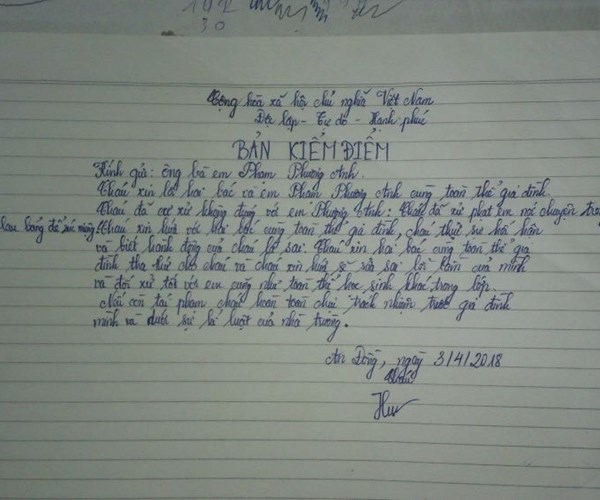 Cộng hòa xã hội chủ nghĩa Việt Nam
Độc lập - Tự do - Hạnh phúc
BẢN KIỂM ĐIỂM
Kính gửi: ông bà em Phạm Phương Anh.
Cháu xin lỗi hai bác và em Phạm Phương Anh cùng toàn thể gia đình.
Cháu đã cư xử không đúng với em Phương Anh: Cháu đã xử phạt em nói chuyện trong
lau bảng để súc miệng. Cháu xin hứa với hai bác cùng toàn thể gia đình, cháu thực sự hối hận
và biết hành động của cháu là sai. Cháu xin hai bác cùng toàn thể gia
đình tha thứ cho cháu và cháu xin hứa sẽ sửa sai lỗi lầm của mình
và đối xử tốt với em cũng như toàn thể học sinh khác trong lớp.
Nếu còn tái phạm cháu hoàn toàn chịu trách nhiệm trước gia đình
mình và dưới sự kỉ luật của nhà trường.
An Đồng, ngày 3/4/2018
Cháu